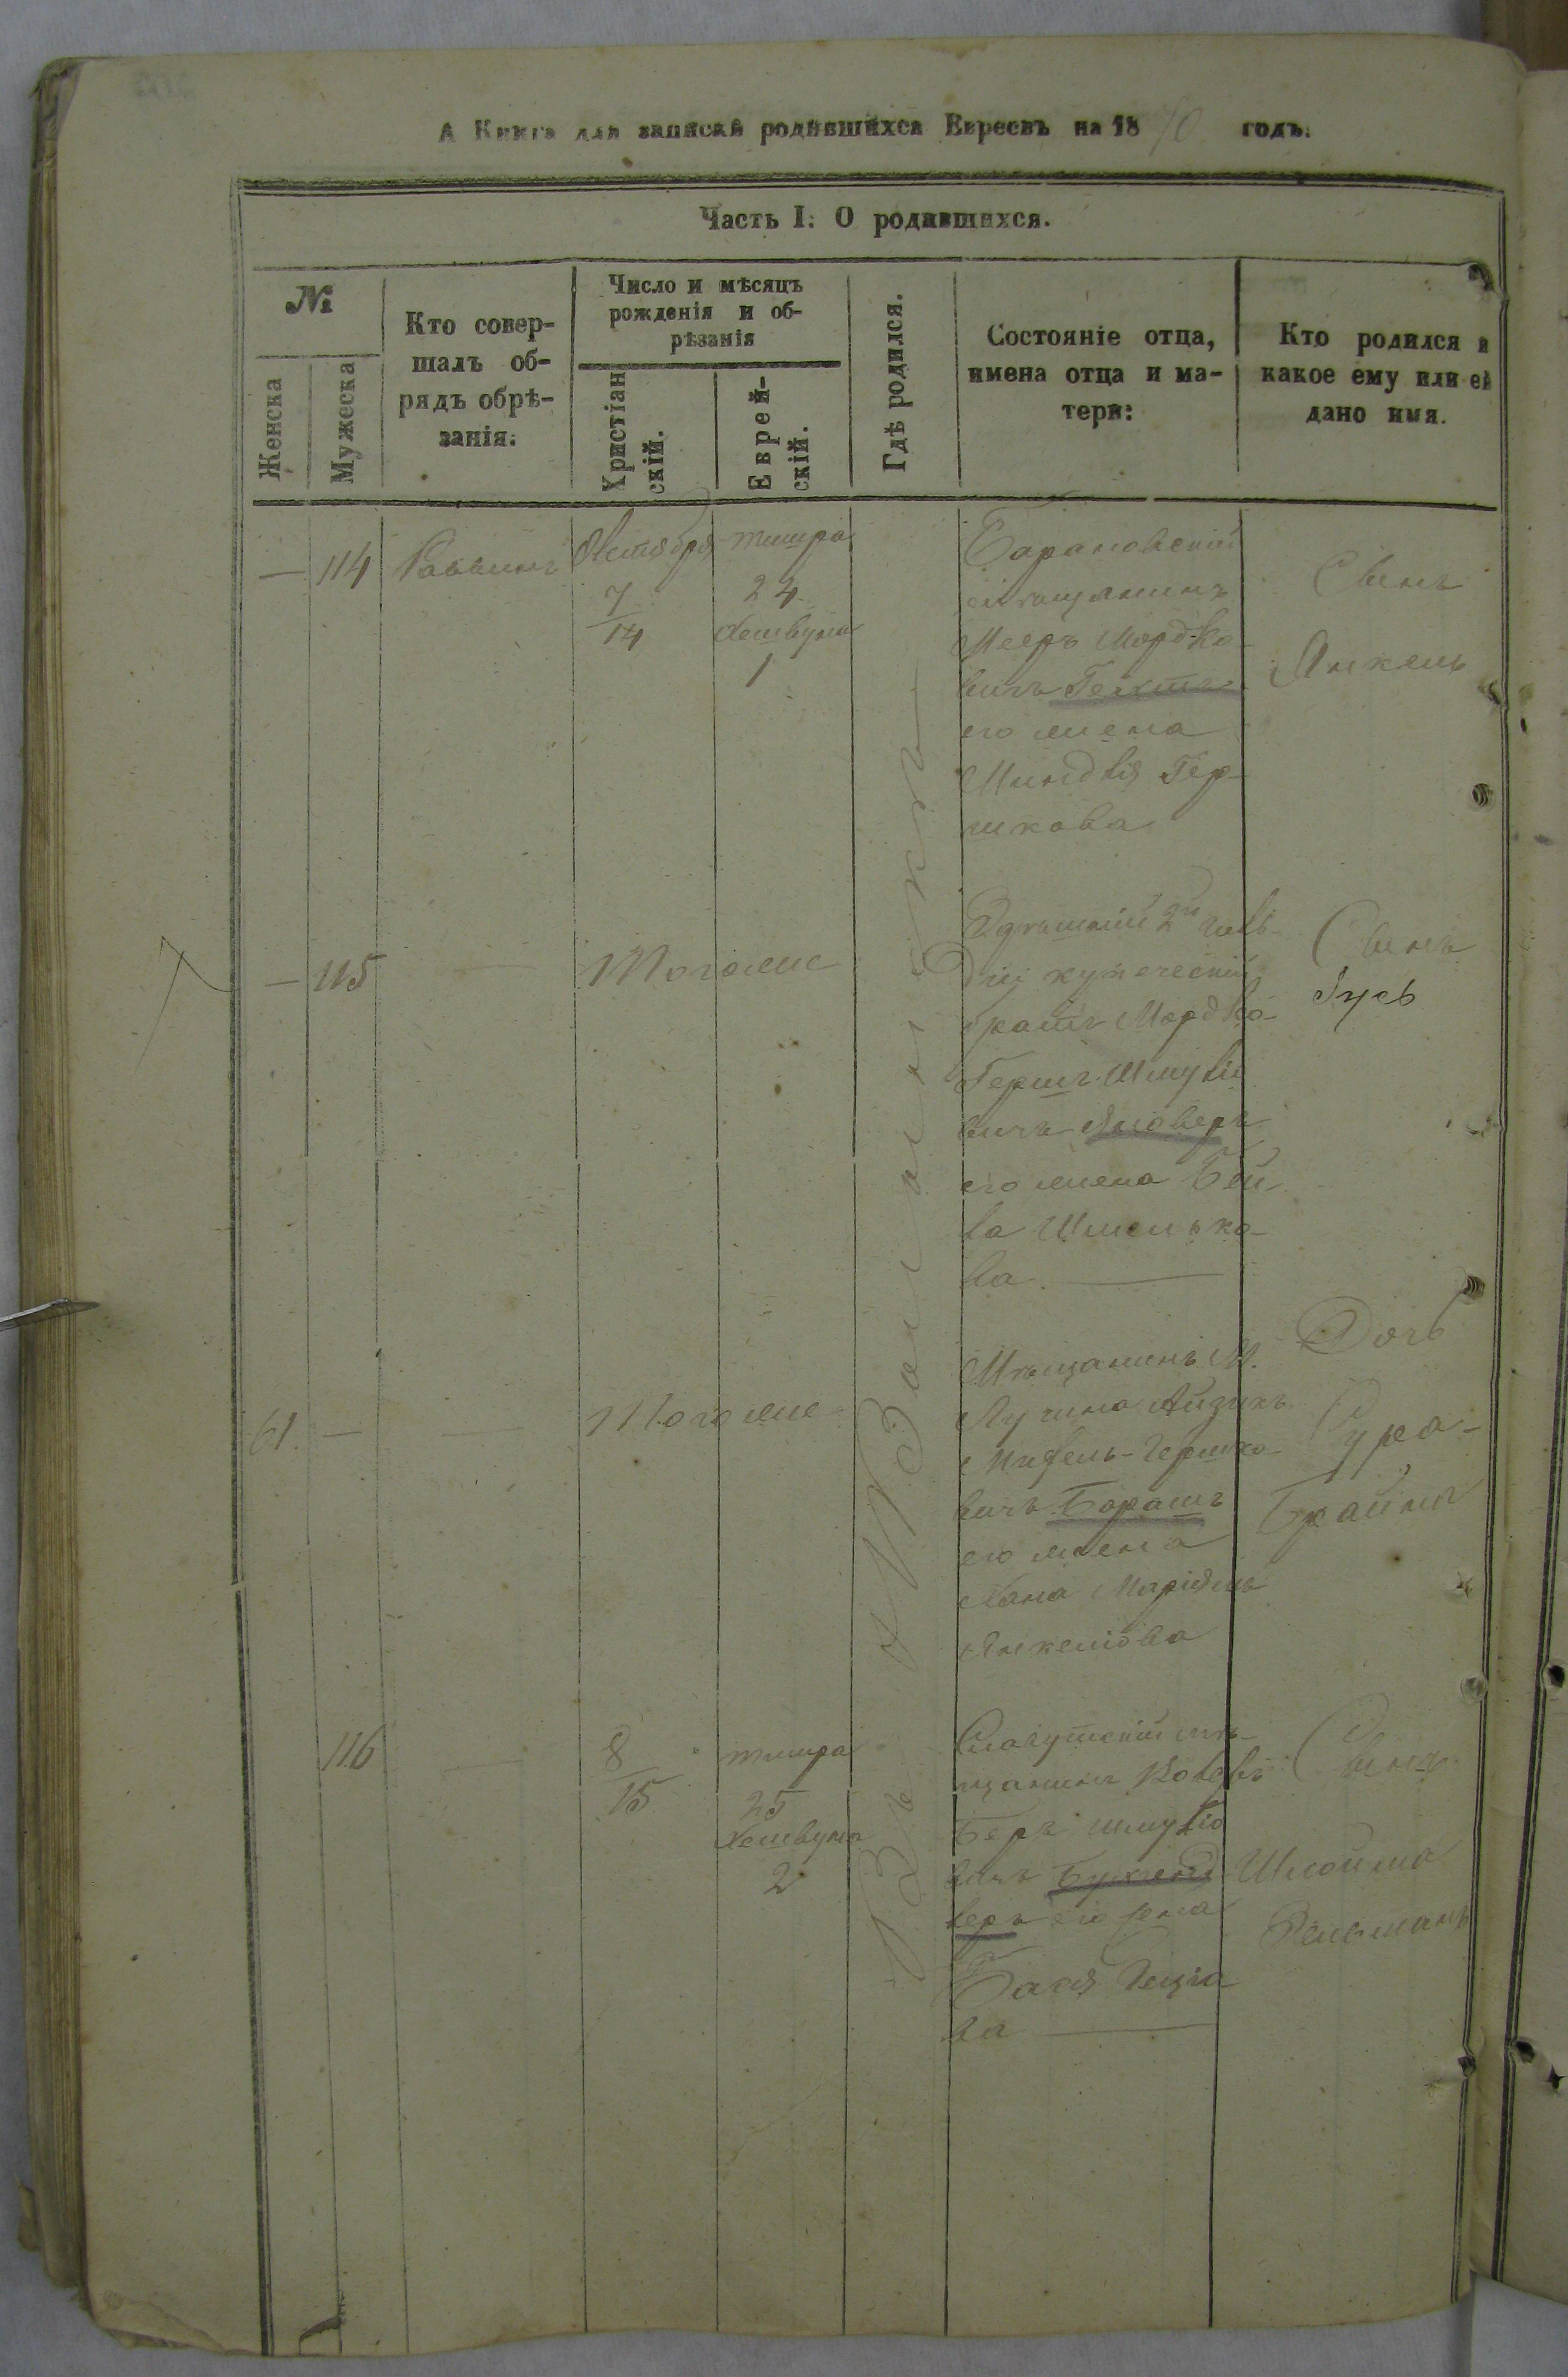 А Книга для записки родившихся Евреевъ на 1870 годъ.
Часть I. О родившихся.
№
Женска
Мужеска
Кто совер-
шалъ об-
рядъ обрѣ-
занія.
Число и мѣсяцъ
рожденія и об-
рѣзанія
Христіан
скій.
Еврей-
скій.
Гдѣ родился.
Состояніе отца,
имена отца и ма-
тери:
Кто родился и
какое ему или ей
дано имя.
— 114 Раввинъ
Октября
7
14
тишра
24
Хешвуна
1
Барановскій
мѣщанинъ
Мееръ Мордко-
вичъ
его жена
Миндля Гер-
шкова
Сынъ
Янкель
— 115 —
Тогоже
2й гиль-
діи купеческій
братъ Мордко-
Гершъ Шмулiо
вичъ Яноверъ
его жена Бей-
ла Шмелько-
ва
Сынъ
Гусь
61. — —
Тогоже
Мѣщанинъ М.
Лучина Айзикъ
Гершко
вичъ Барашъ
его жена
Хана
Янкеліова
Дочь
Сура-
Брайна
116 —
8
15
тишра
25
Хешвуна
2
Славутскій мѣ-
щанинъ
Беръ Шмуліо
вичъ
веръ его жена
Бася
ва
Сынъ
Шлойма
Зельманъ